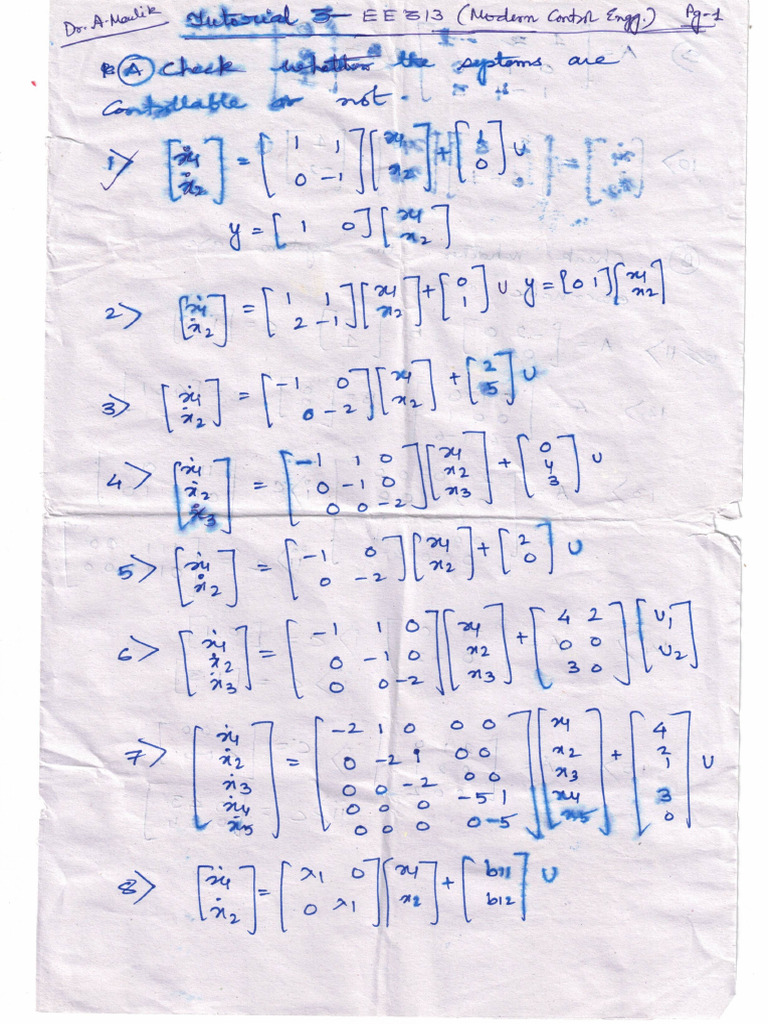 Dr. A. Maulik Tutorial 3 - EE 313 (Modern Control Engg.) Pg-1
(A) Check whether the systems are
Controllable or not.
1> [ẋ1 ẋ2] = [1 1 0 -1] [x1 x2] + [1 0] u
y = [1 0] [x1 x2]
2> [ẋ1 ẋ2] = [1 1 2 -1] [x1 x2] + [0 1] u y = [0 1] [x1 x2]
3> [ẋ1 ẋ2] = [-1 0 0 -2] [x1 x2] + [2 5] u
4> [ẋ1 ẋ2 ẋ3] = [-1 1 0 0 -1 0 0 0 -2] [x1 x2 x3] + [0 4 3] u
5> [ẋ1 ẋ2] = [-1 0 0 -2] [x1 x2] + [2 0] u
6> [ẋ1 ẋ2 ẋ3] = [-1 1 0 0 -1 0 0 0 -2] [x1 x2 x3] + [4 2 0 0 3 0] [u1 u2]
7> [ẋ1 ẋ2 ẋ3 ẋ4 ẋ5] = [-2 1 0 0 0 0 -2 1 0 0 0 0 -2 0 0 0 0 0 -5 1 0 0 0 0 -5] [x1 x2 x3 x4 x5] + [4 2 1 3 0] u
8> [ẋ1 ẋ2] = [λ1 0 0 λ1] [x1 x2] + [b11 b12] u